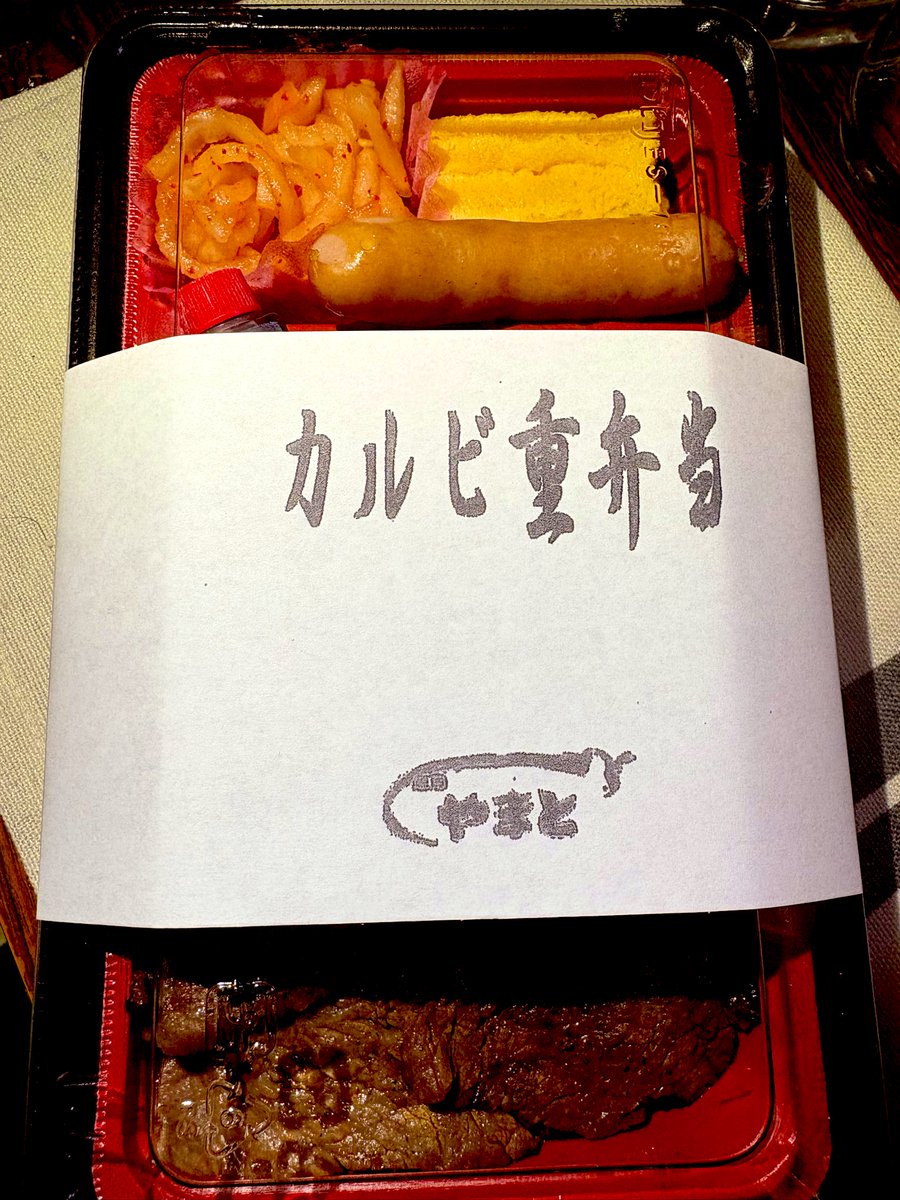 カルビ重弁当
やまと